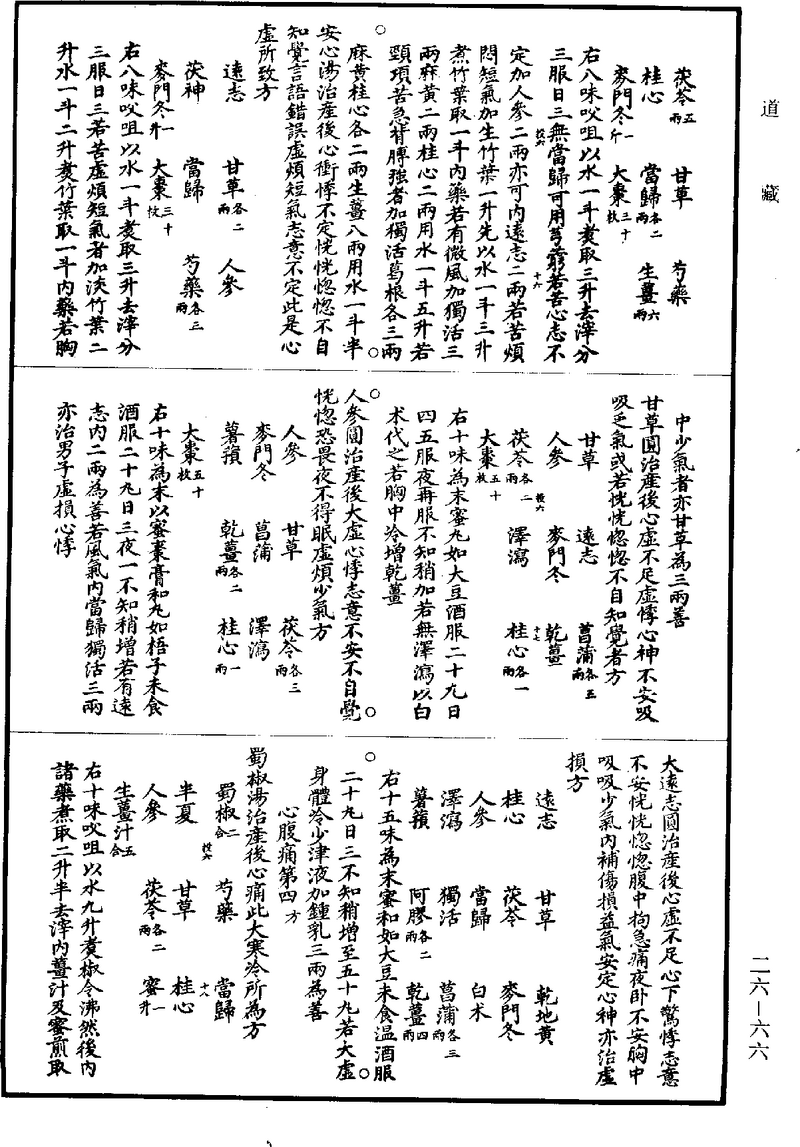 道藏
茯苓五兩 甘草 芍藥
桂心 當歸各二兩 生薑六兩
麥門冬一升 大棗三十枚
右八味㕮咀以水一斗煑取三升去滓分
三服日三無當歸可用芎藭若苦心志不
定加人參二兩亦可內遠志二兩若苦煩
悶短氣加生竹葉一升先以水一斗三升
煮竹葉取一斗內藥若有微風加獨活三
兩麻黃二兩桂心二兩用水一斗五升若
頸項苦急背膊强者加獨活葛根各三兩
麻黃桂心各二兩生薑八兩用水一斗半
安心湯治產後心衝悸不定恍恍惚惚不自
知覺言語錯誤虛煩短氣志意不定此是心
虛所致方
遠志 甘草各二兩 人參
茯神 當歸 芍藥各三兩
麥門冬一升 大棗三十枚
右八味㕮咀以水一斗煑取三升去滓分
三服日三若苦虛煩短氣者加淡竹葉二
升水一斗二升煑竹葉取一斗內藥若胸
中少氣者亦甘草為三兩善
甘草圓治產後心虛不足虛悸心神不安吸
吸乏氣或若恍恍惚惚不自知覺者方
甘草 遠志 菖蒲各五兩
人參 麥門冬 乾薑
茯苓各二兩 澤瀉 桂心各一兩
大棗五十枚
右十味為末蜜丸如大豆酒服二十丸日
四五服夜再服不知稍加若無澤瀉以白
术代之若胸中冷增乾薑
人參圓治產後大虛心悸志意不安不自覺
恍惚恐畏夜不得眠虛煩少氣方
人參 甘草 茯苓各三兩
麥門冬 菖蒲 澤瀉
薯蕷 乾薑各二兩 桂心一兩
大棗五十枚
右十味為末以蜜棗膏和丸如梧子未食
酒服二十丸日三夜一不知稍增若有遠
志內二兩為善若風氣內當歸獨活三兩
亦治男子虛損心悸
大遠志圓治產後心虛不足心下驚悸志意
不安恍恍惚惚腹中拘急痛夜卧不安胸中
吸吸少氣內補傷損益氣安定心神亦治虛
損方
遠志 甘草 乾地黃
桂心 茯苓 麥門冬
人參 當歸 白术
澤瀉 獨活 菖蒲各三兩
薯蕷 阿膠各二兩 乾薑四兩
右十五味為末蜜和如大豆未食温酒服
二十丸日三不知稍增至五十丸若大虛
身體冷少津液加鍾乳三兩為善
心腹痛第四方
蜀椒湯治產後心痛此大寒冷所為方
蜀椒二合 芍藥 當歸
半夏 甘草 桂心
人參 茯苓各二兩 蜜一升
生薑汁五合
右十味㕮咀以水九升煑椒令沸然後內
諸藥煮取二升半去滓內薑汁及蜜煎取
二六—六六